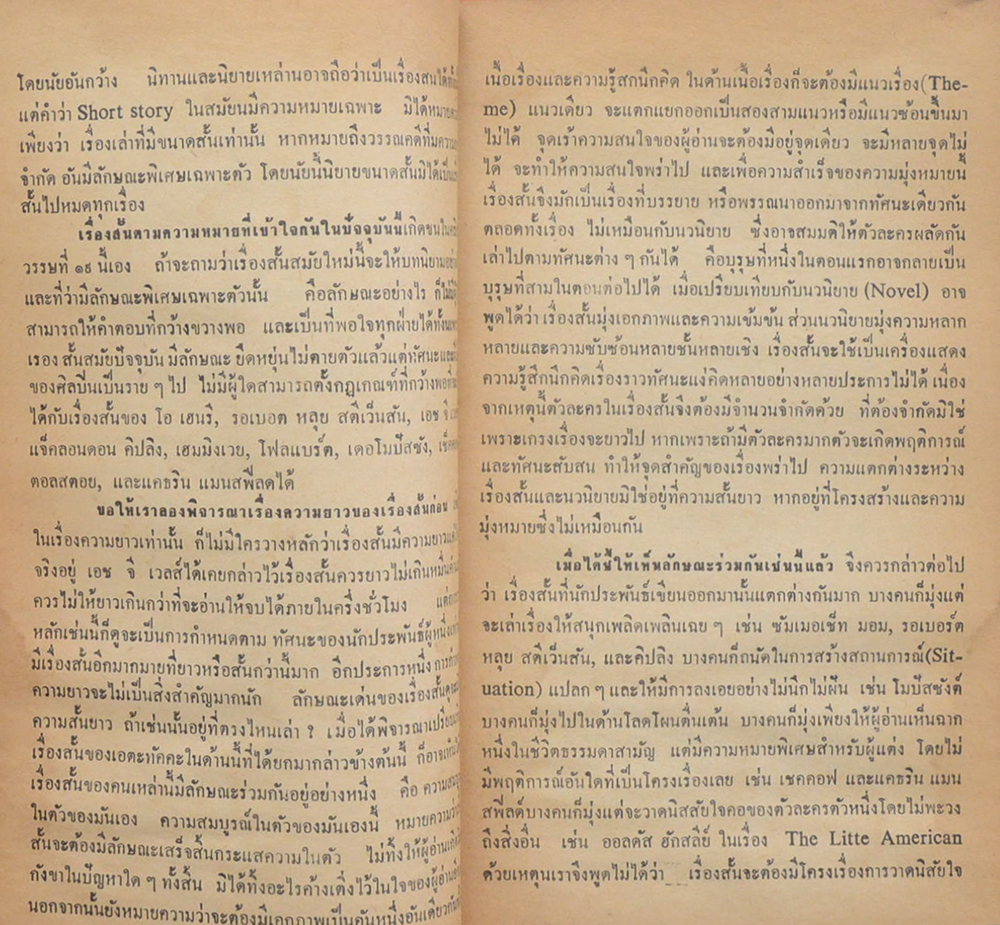 โดยนัยอันกว้าง นิทานและนิยายเหล่านอาจถือว่าเป็นเรื่องสนได้
แต่คำว่า Short story ในสมัยนมีความหมายเฉพาะ มิได้
เพียงว่า เรื่องเล่าที่มีขนาดสั้นเท่านั้น หากหมายถึงวรรณคดีที่มี
จำกัด อันมีลักษณะพิเศษเฉพาะตัว โดยนัยนี้นิยายขนาดสั้นมิได้
สั้นไปหมดทุกเรื่อง
เรื่องสั้นตามความหมายที่เข้าใจกันในปัจจุบันนี้เกิดขน
วรรษที่ ๑๙ นี้เอง ถ้าจะถามว่าเรื่องสั้นสมัยใหม่นี้จะให้บทนิยาม
และที่ว่ามีลักษณะพิเศษเฉพาะตัวนั้น คือลักษณะอย่างไร
สามารถให้คำตอบที่กว้างขวางพอ และเป็นที่พอใจทุกฝ่ายได้
เรื่อง สั้นสมัยปัจจุบัน มีลักษณะ ยืดหยุ่นไม่ตายตัวแล้วแต่ทัศนะ
ของศิลปินเป็นราย ๆ ไป ไม่มีผู้ใดสามารถตั้งกฎเกณฑ์ที่กว้าง
ได้กับเรื่องสั้นของ โอ เฮนรี, รอเบอต หลุย สตีเว็นสัน, เอช จี
แจ็คลอนดอน คิปลิง, เฮมมิงเวย, โฟลแบร์ต, เดอโมปัสซัง,
ตอลสตอย, และแคธริน แมนสฟีลดได้
ขอให้เราลองพิจารณาเรื่องความยาวของเรื่องสั้นก่อน
ในเรื่องความยาวเท่านั้น ก็ไม่มีใครวางหลักว่าเรื่องสั้นมีความยาว
จริงอยู่ เอช จี เวลส์ได้เคยกล่าวไว้เรื่องสั้นควรยาวไม่เกิน
ควรไม่ให้ยาวเกินกว่าที่จะอ่านให้จบได้ภายในครึ่งชั่วโมง
หลักเช่นนี้ก็ดูจะเป็นการกำหนดตาม ทัศนะของนักประพันธ์
มีเรื่องสั้นอีกมากมายที่ยาวหรือสั้นกว่านี้มาก อีกประการหนึ่ง
ความยาวจะไม่เป็นสิ่งสำคัญมากนัก ลักษณะเด่นของเรื่องสั้น
ความสั้นยาว ถ้าเช่นนั้นอยู่ที่ตรงไหนเล่า ? เมื่อได้พิจารณา
เรื่องสั้นของเอตะทัคคะในด้านนี้ที่ได้ยกมากล่าวข้างต้นนี้
เรื่องสั้นของคนเหล่านี้มีลักษณะร่วมกันอยู่อย่างหนึ่ง คือ
ในตัวของมันเอง ความสมบูรณ์ในตัวของมันเองนี้
สั้นจะต้องมีลักษณะเสร็จสิ้นกระแสความในตัว ไม่ทิ้งให้
กังขาในปัญหาใด ๆ ทั้งสิ้น มิได้ทิ้งอะไรค้างเติ่งไว้ในใจของ
นอกจากนั้นยังหมายความว่าจะต้องมีเอกภาพเป็นอันหนึ่ง
เนื้อเรื่องและความรู้สกนึกคิด ในด้านเนื้อเรื่องก็จะต้องมีแนวเรื่อง (The-
me) แนวเดียว จะแตกแยกออกเป็นสองสามแนวหรือมีแนวซ้อนขึ้นมา
ไม่ได้ จุดเร้าความสนใจของผู้อ่านจะต้องมีอยู่จุดเดียว จะมีหลายจุดไม่
ได้ จะทำให้ความสนใจพร่าไป และเพื่อความสำเร็จของความมุ่งหมายนี้
เรื่องสั้นจึงมักเป็นเรื่องที่บรรยาย หรือพรรณนาออกมาจากทัศนะเดียวกัน
ตลอดทั้งเรื่อง ไม่เหมือนกับนวนิยาย ซึ่งอาจสมมติให้ตัวละครผลัดกัน
เล่าไปตามทัศนะต่าง ๆ กันได้ คือบุรุษที่หนึ่งในตอนแรกอาจกลายเป็น
บุรุษที่สามในตอนต่อไปได้ เมื่อเปรียบเทียบกับนวนิยาย (Novel) อาจ
พูดได้ว่า เรื่องสั้นมุ่งเอกภาพและความเข้มข้น ส่วนนวนิยายมุ่งความหลาก
หลายและความซับซ้อนหลายชั้นหลายเชิง เรื่องสั้นจะใช้เป็นเครื่องแสดง
ความรู้สึกนึกคิดเรื่องราวทัศนะแง่คิดหลายอย่างหลายประการไม่ได้ เนื่อง
จากเหตุนี้ตัวละครในเรื่องสั้นจึงต้องมีจำนวนจำกัดด้วย ที่ต้องจำกัดมิใช่
เพราะเกรงเรื่องจะยาวไป หากเพราะถ้ามีตัวละครมากตัวจะเกิดพฤติการณ์
และทัศนะสับสน ทำให้จุดสำคัญของเรื่องพร่าไป ความแตกต่างระหว่าง
เรื่องสั้นและนวนิยายมิใช่อยู่ที่ความสั้นยาว หากอยู่ที่โครงสร้างและความ
มุ่งหมายซึ่งไม่เหมือนกัน
เมื่อได้ชี้ให้เห็นลักษณะร่วมกันเช่นนี้แล้ว จึงควรกล่าวต่อไป
ว่า เรื่องสั้นที่นักประพันธ์เขียนออกมานั้นแตกต่างกันมาก บางคนก็มุ่งแต่
จะเล่าเรื่องให้สนุกเพลิดเพลินเฉย ๆ เช่น ซัมเมอเช็ท มอม, รอเบอร์ต
หลุย สตีเว็นสัน, และคิปลิง บางคนก็ถนัดในการสร้างสถานการณ์ (Sit-
uation) แปลก ๆ และให้มีการลงเอยอย่างไม่นึกไม่ฝัน เช่น โมปัสซังต์
บางคนก็มุ่งไปในด้านโลดโผนตื่นเต้น บางคนก็มุ่งเพียงให้ผู้อ่านเห็นฉาก
หนึ่งในชีวิตธรรมดาสามัญ แต่มีความหมายพิเศษสำหรับผู้แต่ง โดยไม่
มีพฤติการณ์อันใดที่เป็นโครงเรื่องเลย เช่น เชคคอฟ และแคธริน แมน
สฟีลด์บางคนก็มุ่งแต่จะวาดนิสสัยใจคอของตัวละครตัวหนึ่งโดยไม่พะวง
ถึงสิ่งอื่น เช่น ออลดัส ฮักสลีย์ ในเรื่อง The Litte American
ด้วยเหตุนเราจึงพูดไม่ได้ว่า เรื่องสั้นจะต้องมีโครงเรื่องการวาดนิสัยใจ